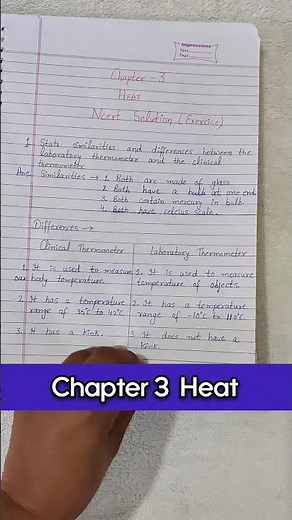 Impressions
Date
Page
Chapter - 3
HEAT
Ncert Solution (Exercise)
1. State similarities and differences between the
laboratory thermometer and the clinical
thermometer
Ans. Similarities → 1. Both are made of glass
2. Both have a bulb at one end
3. Both contain mercury in bulb.
4. Both have celcius scale.
Differences →
Clinical Thermometer
Laboratory Thermometer
1. It is used to measure
our body temperature.
1. It is used to measure
temperature of objects.
2. It has a temperature
range of 35°C to 42°C
2. It has a temperature
range of -10°C to 110°C.
3. It has a kink.
3. It does not have a
kink.
Chapter 3 Heat